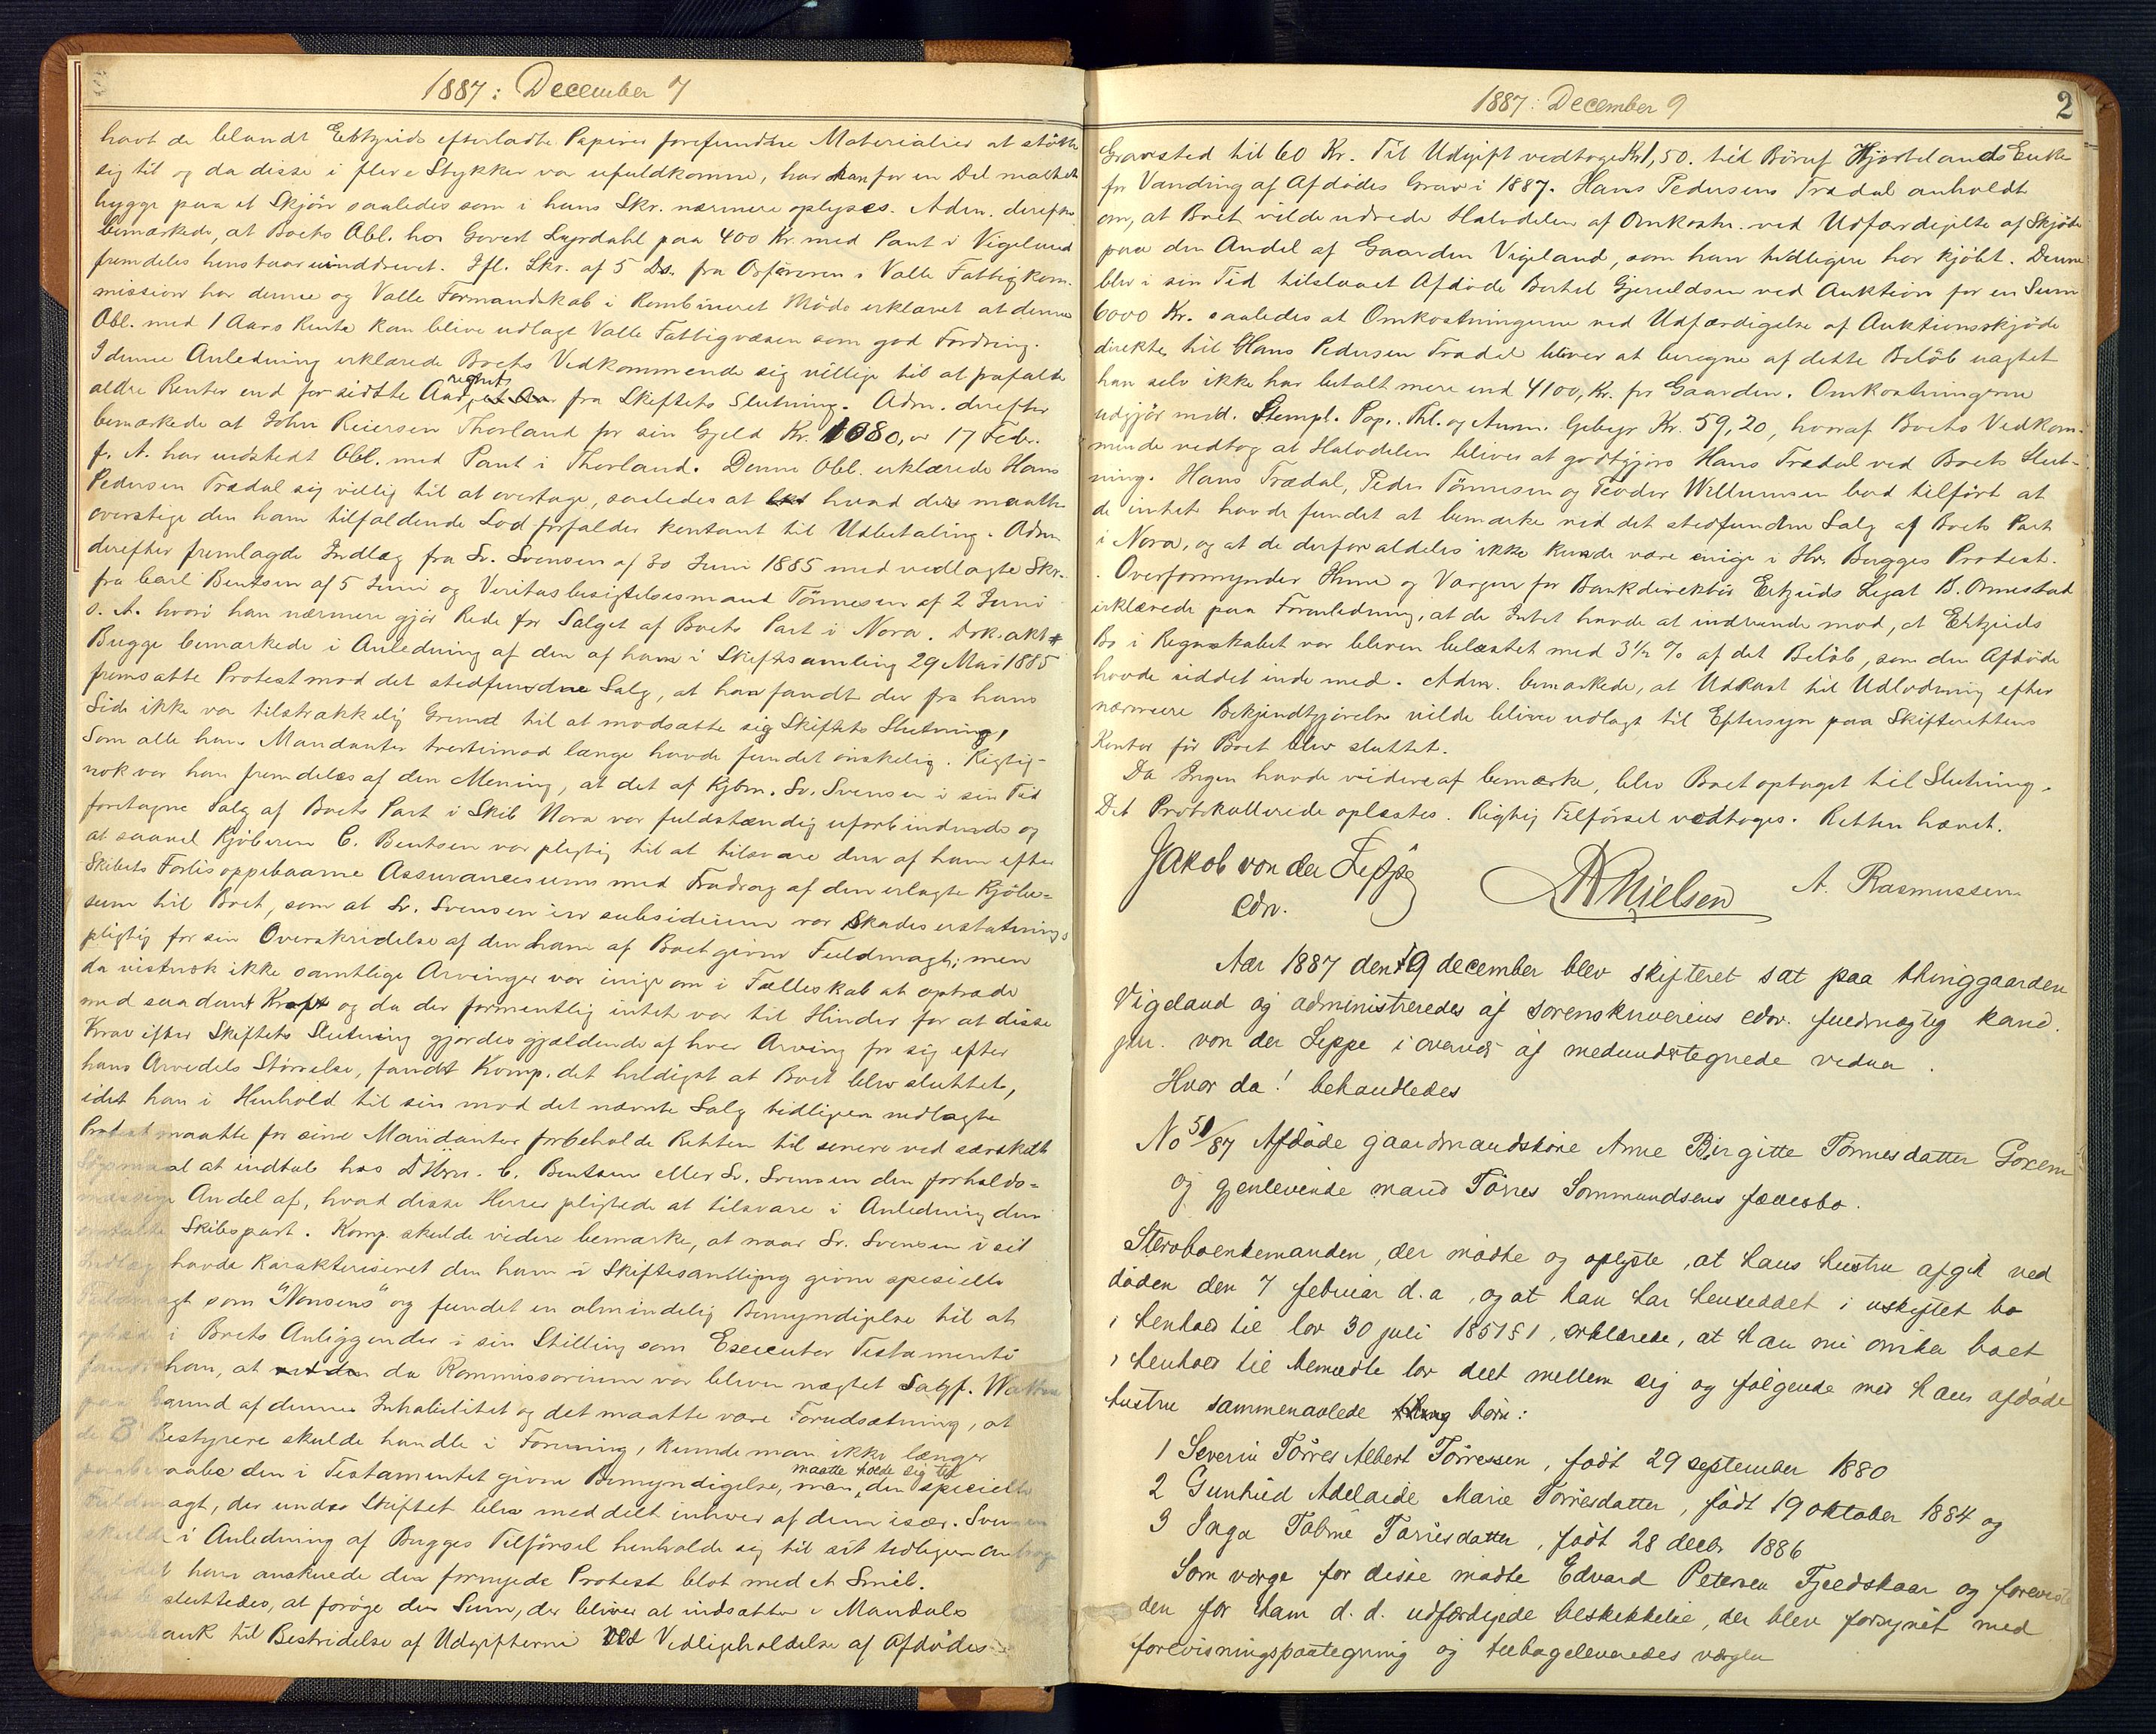 1887: December 7
havt de blandt Ebtzuids efterladte Papirer forefundne Materialier at støtte
sig til og da disse i flere Stykker var ufuldkomne, har han for en Del maattet
bygge paa et Skjøn saaledes som i hans Skr. nærmere oplyses. Adm. derefter
bemærkede, at Boets Obl. hos Govert Lyrdahl paa 400 Kr. med Pant i Vigeland
fremdeles henstaar uinddrevet. Ifl. Skr. af 5 Ds. fra Ordføreren i Valle Fattigkom-
mission har denne og Valle Formandskab i Kombineret Møde erklæret at denne
Obl. med 1 Aars Rente kan blive udlagt Valle Fattigvæsen som god Fordring.
I denne Anledning erklærede Boets Vedkommende sig villige til at frafalde
ældre Renter end for sidste Aar regnet fra Skiftets Slutning. Adm. derefter
bemærkede at John Reiersen Thorland for sin Gjeld Kr. 1080, 17 Febr.
f. A. har udstedt Obl. med Pant i Thorland. Denne Obl. erklærede Hans
Pedersen Trædal sig villig til at overtage, saaledes at hvad der maatte
overstige den ham tilfaldende Lod forfalder kontant til Udbetaling. Adm.
derefter fremlagde Indlæg fra Sv. Svensen af 30 Juni 1885 med vedlagte Skr.
fra Carl Bentsen af 5 Juni og Veritasbesigtelsesmand Tönnesen af 2 Juni
s. A. hvori han nærmere gjør Rede for Salget af Boets Part i Nora. Dok. akt.
Bugge bemærkede i Anledning af den af ham i Skiftesamling 29 Mai 1885
fremsatte Protest mod det stedfundne Salg, at han fandt der fra hans
Side ikke var tilstrækkelig Grund til at modsætte sig Skiftets Slutning,
som alle hans Mandanter tvertimod længe havde fundet ønskelig. Rigtig-
nok var han fremdeles af den Mening, at det af Kjbm. Sv. Svensen i sin Tid
foretagne Salg af Boets Part i Skib Nora var fuldstændig uforbindende og
at saavel Kjøberen C. Bentsen var pligtig til at tilsvare den af ham efter
Skibets Forlis oppebaarne Assurancesum med Fradrag af den erlagte Kjøbe-
sum til Boet, som at Sv. Svensen in subsidium var Skadeserstatnings
pligtig for sin Overskridelse af den ham af Boet givne Fuldmagt; men
da vistnok ikke samtlige Arvinger var enige om i Fælleskab at optræde
med saadant Krav og da der formentlig intet var til Hinder for at disse
Krav efter Skiftets Slutning gjordes gjældende af hver Arving for sig efter
hans Arvedels Størrelse, fandt Komp. det heldigst at Boet blev sluttet,
idet han i Henhold til sin mod det nævnte Salg tidligere nedlagte
Protest maatte for sine Mandanter forbeholde Retten til senere ved særskilt
Søgsmaal at indtale hos DHrr. C. Bentsen eller Sv. Svensen den forholds-
mæssige Andel af, hvad disse Herrer pligtede at tilsvare i Anledning den
omtalte Skibspart. Komp. skulde videre bemærke, at naar Sv. Svensen i sit
Indlæg havde karakteriseret den ham i Skiftesamling givne specielle
Fuldmagt som "Nonsens" og fundet en almindelig Bemyndigelse til at
optræde i Boets Anliggender i sin Stilling som Executor Testamenti
fandt han, at da Kommissorium var bleven nægtet Sagf.
paa Grund af dennes Inhabilitet og det maatte være Forudsætning, at
de 3 Bestyrere skulde handle i Forening, kunde man ikke længer
paaberaabe den i Testamentet givne Bemyndigelse, men maatte holde sig til den specielle
Fuldmagt, der under Skiftet blev meddelt enhver af dem især. Svensen
skulde i Anledning af Bugges Tilførsel henholde sig til sit tidligere
idet han anskuede den fornyede Protest blot med et Smil.
Det besluttedes, at forøge den Sum, der bliver at indsætte i Mandals
Sparebank til Bestridelse af Udgifterne ved Vedligeholdelse af Afdødes
1887: December 9
2
Gravsted til 60 Kr. Til Udgift vedtoges Kr. 1,50. til Börüf Hjortelands Enke
for Vanding af Afdødes Grav i 1887. Hans Pedersens Trædal anholdt
om, at Boet vilde udrede Halvdelen af Omkostn. ved Udfærdigelse af Skjøde
paa den Andel af Gaarden Vigeland, som han tidligere har kjøbt. Denne
blev i sin Tid tilslaaet Afdøde Bertel Gjeruldsen ved Auktion for en Sum
6000 Kr. saaledes at Omkostningerne ved Udfærdigelse af Auktionsskjøde
direkte til Hans Pedersen Trædal bliver at beregne af dette Beløb uagtet
han selv ikke har betalt mere end 4100, Kr. for Gaarden. Omkostningerne
udgjør med. Stempl. Pap. Thl. og Aurm. Gebyr Kr. 59,20, hvoraf Boets Vedkom-
mende vedtog at Halvdelen bliver at godtgjøre Hans Trædal ved Boets Slut-
ning. Hans Trædal, Peder Tönnesen og Teodor Willumsen bad tilført at
de intet havde fundet at bemærke ved det stedfundne Salg af Boets Part
i Nora, og at de derfor aldeles ikke kunde være enige i Hr. Bugges Protest.
Overformynder Hune og Værgen for Bankdirektør Ertzeids Legat B. Omestad
erklærede paa Foranledning, at de Intet havde at indvende mod, at Ertzeids
Bo i Regnskabet var bleven belastet med 3½ % af det Beløb, som den Afdøde
havde siddet inde med. Adm. bemærkede, at Udkast til Udlodning efter
nærmere Bekjendtgjørelse vilde blive udlagt til Eftersyn paa Skifterettens
Kontor før Boet blev sluttet.
Da Ingen havde videre at bemærke, blev Boet optaget til Slutning.
Det Protokollerede oplæstes. Rigtig Tilførsel vedtoges. Retten hævet.
Jakob von der Leppe
edv.
Nielsen
A. Rasmussen
Aar 1887 den 9 december blev skifteret sat paa thinggaarden
Vigeland og administreredes af sorenskriverens edsv. fuldmægtig kand.
jur. von der Leppe i overvær af medundertegnede vidner.
Hvor da! behandledes
No 51/87 Afdøde gaardmandskone Anne Birgitte Tørresdatter Goxem
og gjenlevende mand Tørres Sommundsens fællesbo.
Stervboenkemanden, der mødte og oplyste, at hans hustru afgik ved
døden den 7 februar d. a, og at han har henseddet i uskiftet bo
i henhold til lov 30 juli 1851 § 1, erklærede, at han nu ønsker boet
i henhold til bemeldte lov delt mellem sig og følgende med hans afdøde
hustru sammenavlede børn:
1 Severin Tørres Albert Tørressen, født 29 september 1880
2 Gunhild Adelaide Marie Tørresdatter, født 19 oktober 1884 og
3 Inga Tobine Tørresdatter, født 28 decbr 1886
Som værge for disse mødte Edvard Petersen Fjeldskaar og foreviste
den for ham d. d. udfærdigede beskikkelse, der blev forsynet med
forevisningspaategning og tilbageleveredes værgen